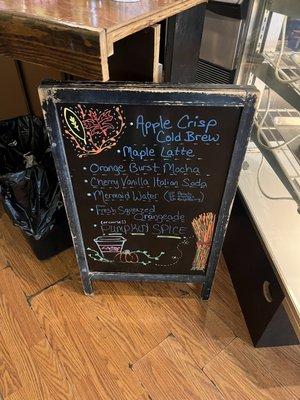 Apple Crisp
Cold Brew
Maple Latte
Orange Burst Mocha
Cherry Vanilla Italian Soda
Mermaid Water
Fresh Squeezed
Orangeade
(of course!)
PUMPKIN SPICE